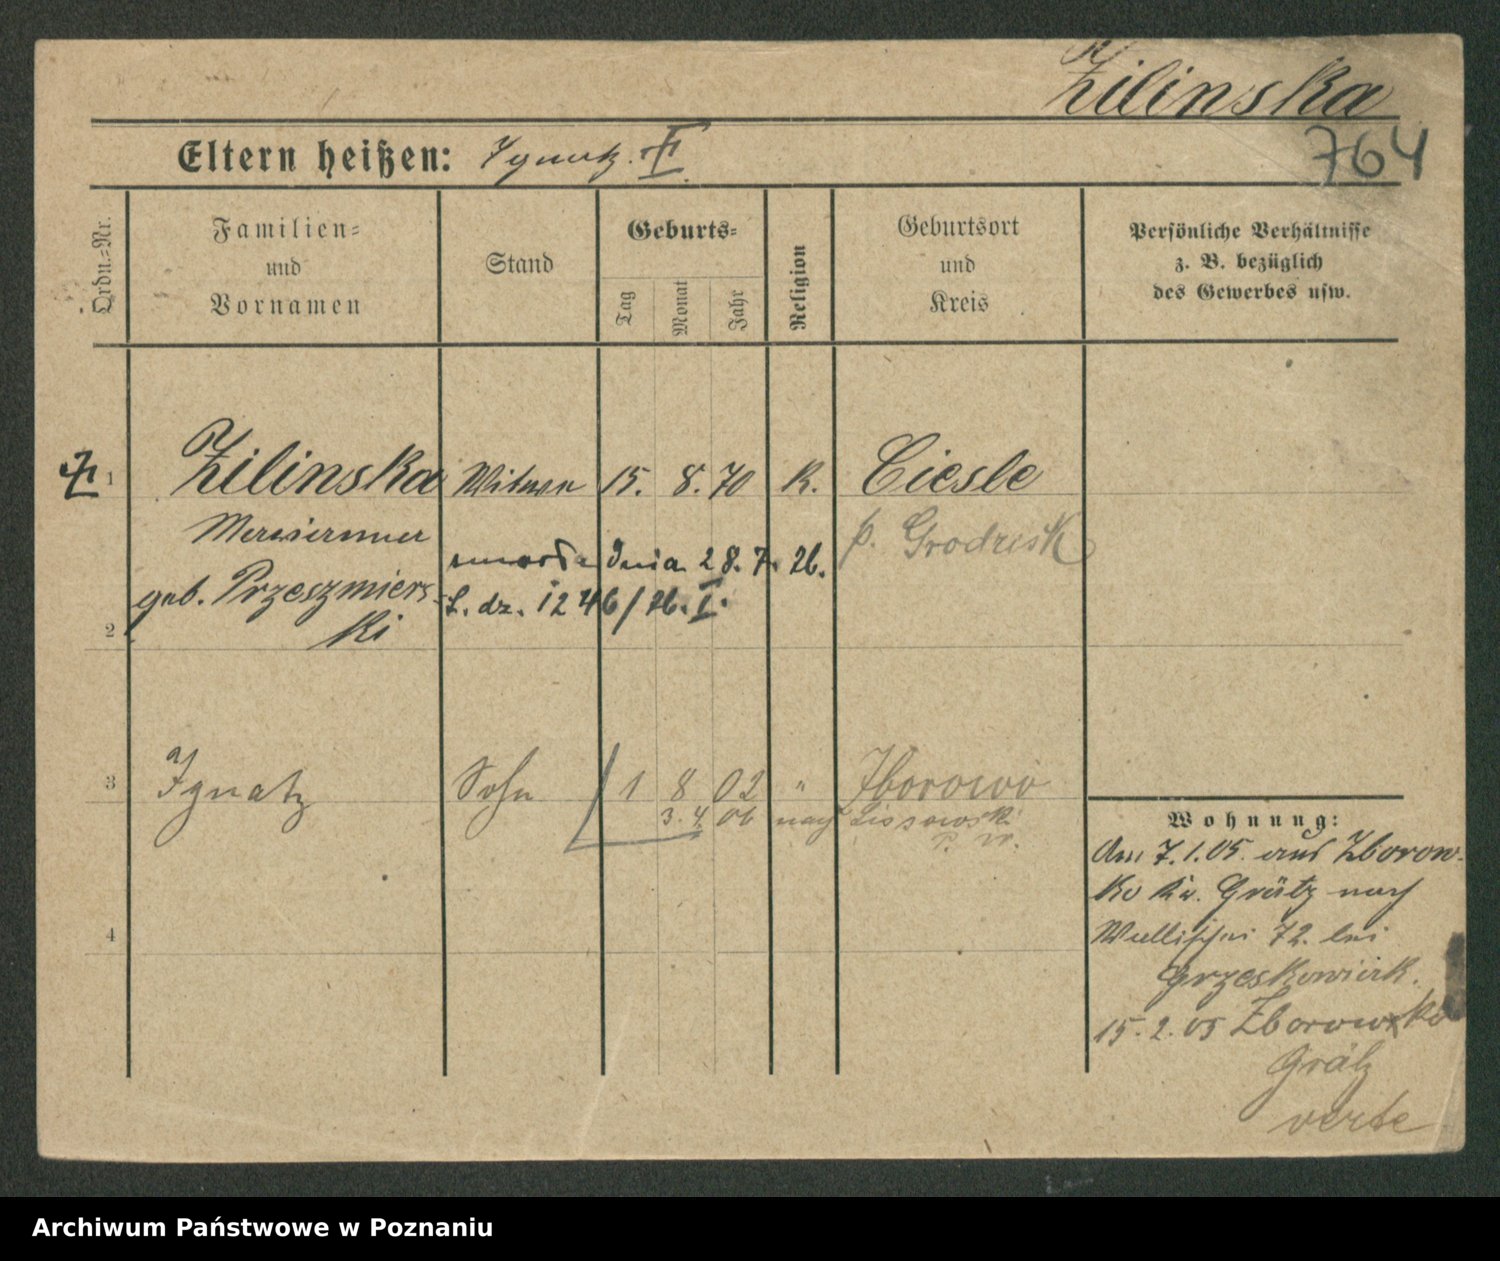 Zilinska
764
Eltern heißen: Ignatz
Ordn.-Nr.
Familien-
und
Vornamen
Stand
Geburts-
Tag
Monat
Jahr
Religion
Geburtsort
und
Kreis
Persönliche Verhältnisse
z. B. bezüglich
des Gewerbes usw.
1 Zilinska Witwe 15. 8. 70 K. Ciesle
p. Grodzisk
zmarła dnia 28. 7. 26.
geb. Przeszmiers-
L. dz. 1246/26. I.
2 ki
3 Ignatz Sohn 1 8 02 " Zborowo
3. 4. 06 nach Lissowski
P. W.
4
Wohnung:
Am 7.1.05. aus Zborow-
ko Kr. Grätz nach
72. bei
Grzeskowiak.
15. 2. 05 Zborowko
Grätz
verte
Archiwum Państwowe w Poznaniu